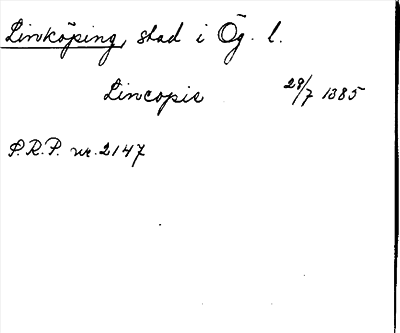 Linköping, stad i Ög. l.
Lincopie 28/7 1385
S.R.P. nr. 2147